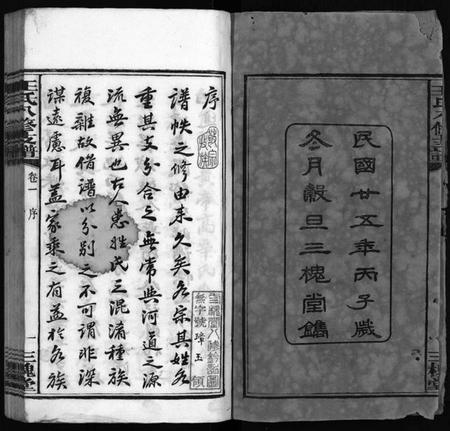 民國廿五年丙子歲
冬月穀旦三槐堂鐫
序
譜帙之修由來久矣各宗其姓各
重其支分合之無常與河道之源
流無異也古人患姓氏之混淆種族
複雜故借譜以分別之不可謂非深
謀遠慮耳蓋家乘之有益於各族
王氏八修支譜
卷一 序
一 三槐堂
字號 璋玉 領